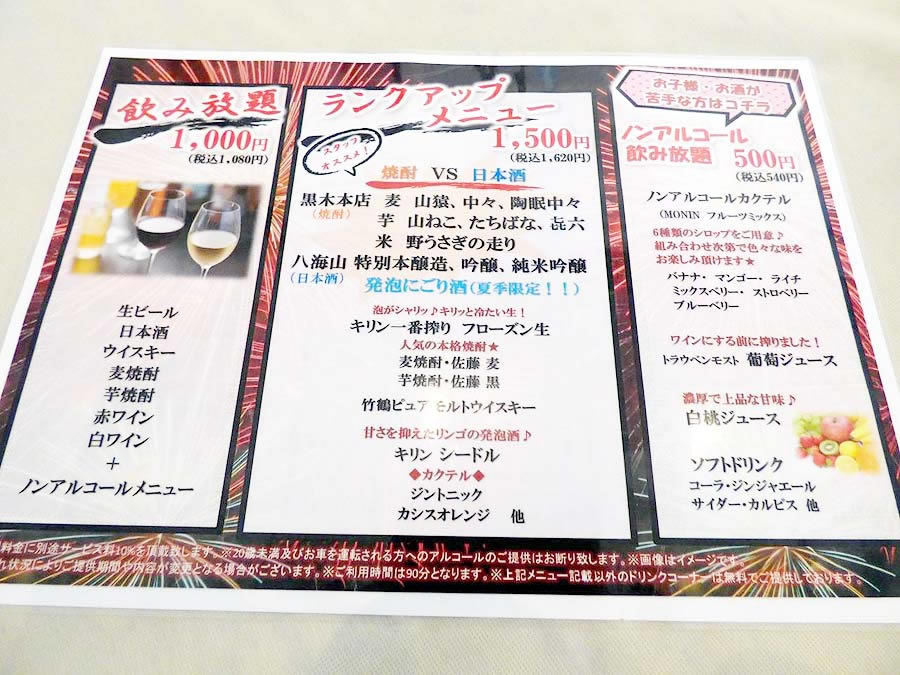 飲み放題
1,000円
(税込1,080円)
生ビール
日本酒
ウイスキー
麦焼酎
芋焼酎
赤ワイン
白ワイン
+
ノンアルコールメニュー
ランクアップ
メニュー
スタッフ
オススメ!
1,500円
(税込1,620円)
焼酎 VS 日本酒
黒木本店 麦 山猿、中々、陶眠中々
(焼酎) 芋 山ねこ、たちばな、㐂六
米 野うさぎの走り
八海山 特別本醸造、吟醸、純米吟醸
(日本酒) 発泡にごり酒(夏季限定!!)
泡がシャリッ♪キリッと冷たい生!
キリン一番搾り フローズン生
人気の本格焼酎★
麦焼酎・佐藤 麦
芋焼酎・佐藤 黒
竹鶴ピュアモルトウイスキー
甘さを抑えたリンゴの発泡酒♪
キリン シードル
◆カクテル◆
ジントニック
カシスオレンジ 他
お子様・お酒が
苦手な方はコチラ
ノンアルコール
飲み放題 500円
(税込540円)
ノンアルコールカクテル
(MONIN フルーツミックス)
6種類のシロップをご用意♪
組み合わせ次第で色々な味を
お楽しみ頂けます★
バナナ・マンゴー・ライチ
ミックスベリー・ストロベリー
ブルーベリー
ワインにする前に搾りました!
トラウベンモスト 葡萄ジュース
濃厚で上品な甘味♪
白桃ジュース
ソフトドリンク
コーラ・ジンジャエール
サイダー・カルピス 他
料金に別途サービス料10%を頂戴致します。※20歳未満及びお車を運転される方へのアルコールのご提供はお断り致します。※画像はイメージです。
れ状況によりご提供期間や内容が変更となる場合がございます。※ご利用時間は90分となります。※上記メニュー記載以外のドリンクコーナーは無料でご提供しております。